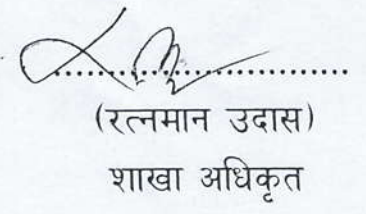 (रत्नमान उदास)
शाखा अधिकृत